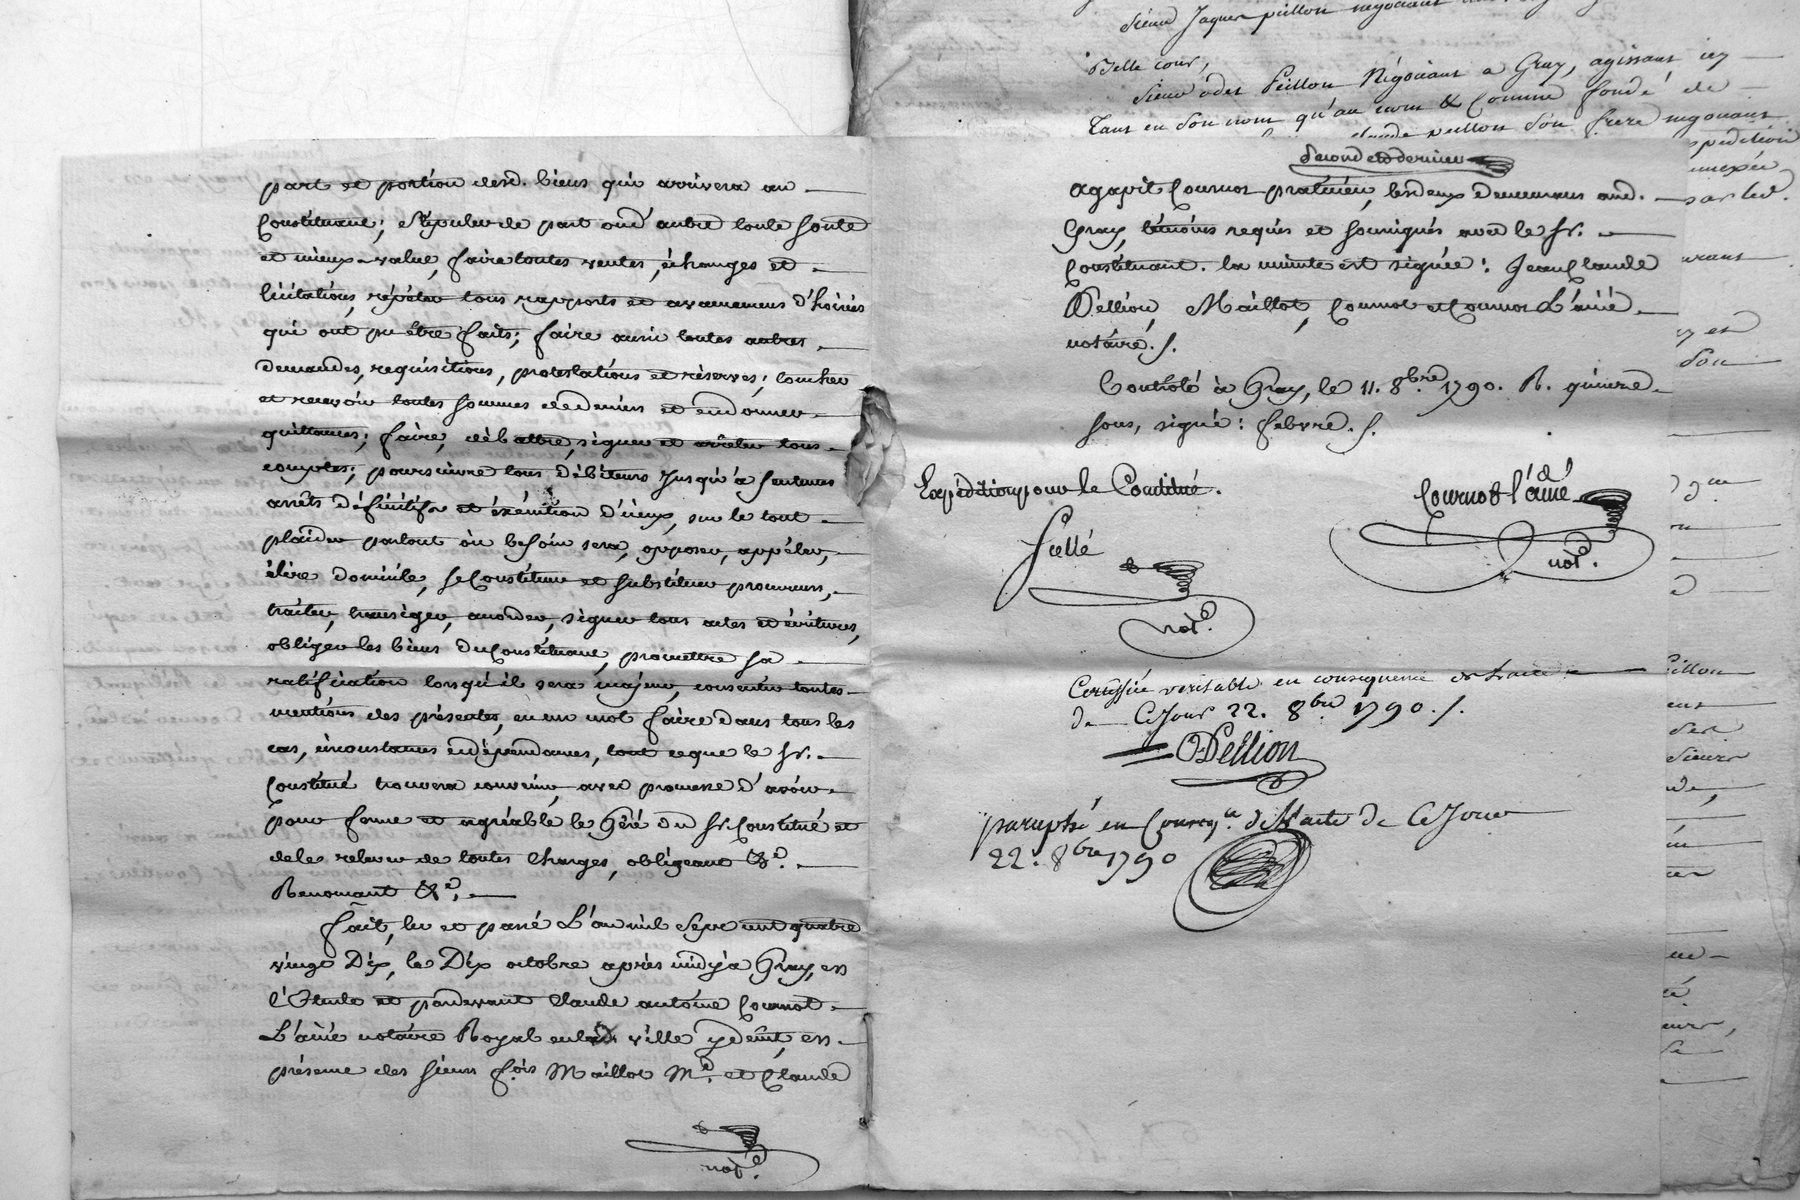 part et portion desd. biens qui arrivera au
Constituant; stipuler de part ou d'autre toute soulte
et mieux-value, faire toutes ventes, échanges et
licitations, répéter tous rapports et avancemens d'hoiries
qui ont pu être faits; faire aussi toutes autres
demandes, requisitions, protestations et réserves; toucher
et recevoir toutes sommes de deniers et en donner
quittances; faire, débattre, signer et arrêter tous
comptes; poursuivre tous débiteurs jusqu'à sentences
arrêts définitifs et éxécution d'iceux, sur le tout
plaider partout où besoin sera, opposer, appéler,
élire domicile, se Constituer et substituer procureurs,
traiter, transiger, accorder, signer tous actes et écritures,
obliger les biens du Constituant, promettre sa
ratification lorsqu'il sera majeur, consentir toutes
mentions des présentes, en un mot faire dans tous les
cas, circonstances en dépendances, tout ce que le Sr.
Constitué trouvera convenir, avec promesse d'avoir
pour ferme et agréable le Géré du Sr. Constitué et
de le relever de toutes charges, obligeant &a.
Renonçant &a.
Fait, lu et passé L'an mil sept cent quatre
vingt Dix, le Dix octobre après midy à Gray, en
l'Etude et pardevant Claude antoine Cournot
L'ainé notaire Royal en lad. ville y demt, en
présence des sieurs fçois Maillot Md. et Claude
not.
Sieur Jaques peillon negociant
Belle cour,
Sieur odet Peillon Négociant a Gray, agissant icy
Tant en son nom qu'au nom & Comme fondé de
peillon son frere negociant
Second et dernier
agapit Cournot praticien, les deux demeurans aud.
Gray, témoins requis et soussignés avec le Sr.
Constituant. la minute est signée: Jean Claude
Pellion, Maillot, Cournot et Cournot L'ainé
notaire. /.
Controlé à Gray, le 11. 8bre 1790. R. quinze
sous, signé: febvre. /.
Expédition pour le Constitué.
Cournot l'ainé
not.
Scellé
not.
Certiffié veritable en consequence de l'acte
de Ce Jour 22. 8bre 1790. /.
OPellion
paraphé en Conseqce de l'acte de Ce Jour
22. 8bre 1790